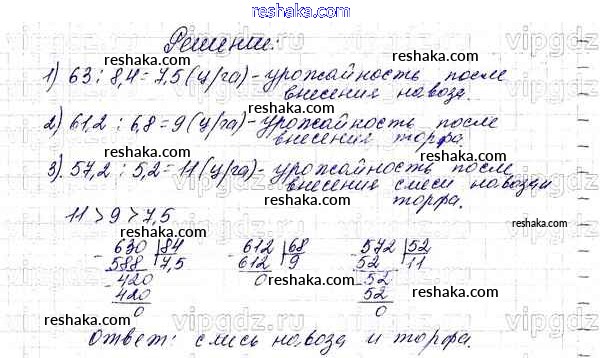 reshaka.com
Решение:
reshaka.com
1) 63 : 8,4 = 7,5 (ц/га) - урожайность после
внесения навоза.
reshaka.com
2) 61,2 : 6,8 = 9 (ц/га) - урожайность после
внесения торфа.
reshaka.com
3). 57,2 : 5,2 = 11 (ц/га) - урожайность после
внесения смеси навоза и
торфа.
reshaka.com
11 > 9 > 7,5
reshaka.com
- 630 | 84
588 | 7,5
- 420
420
0
- 612 | 68
612 | 9
0
- 572 | 52
52 | 11
- 52
52
0
reshaka.com
Ответ: смесь навоза и торфа.
reshaka.com
vipgdz.com